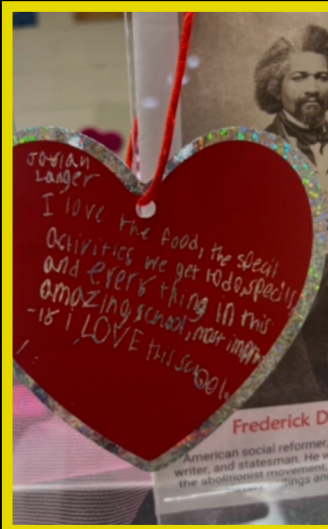 Jovian
Langer
I love the food, the speail
activities we get to do, specily
and every thing in this
amazing school, most impr
-is i LOVE this school.
Frederick D
American social reformer,
writer, and statesman. He w
the abolitionist movement,
ings and